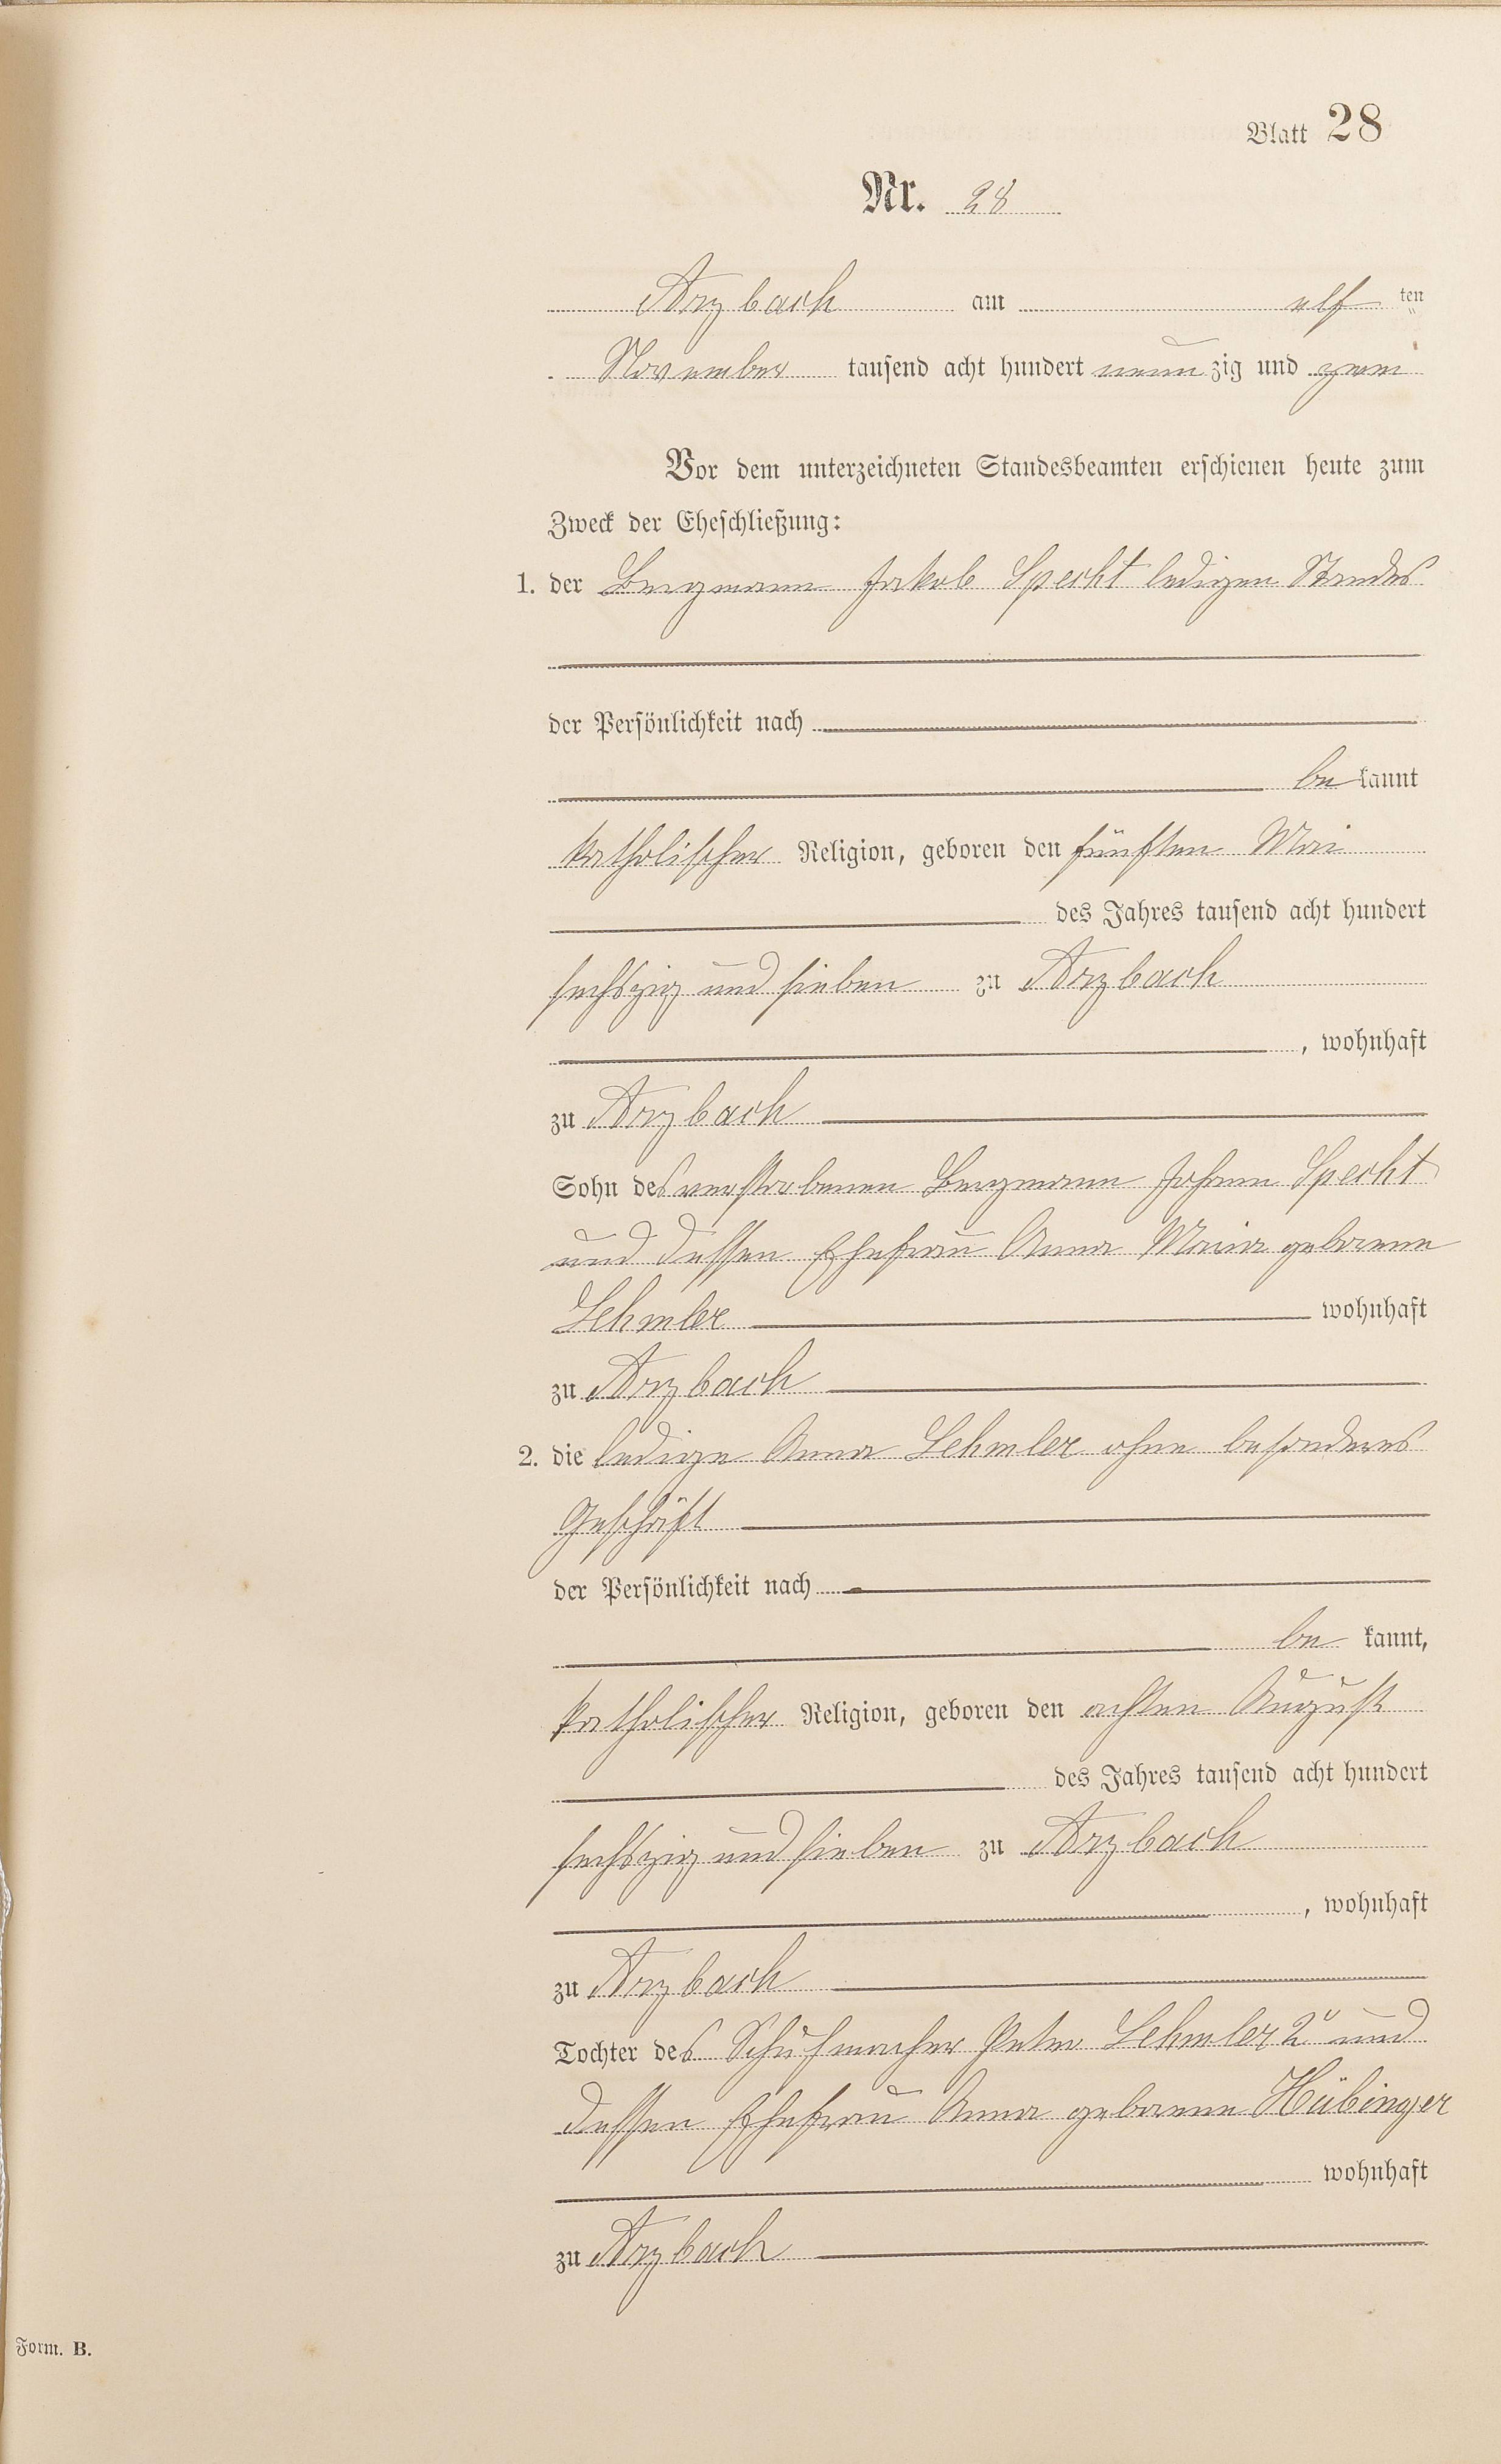 Blatt 28
Nr. 28
Arzbach am elf ten
November tausend acht hundert neun zig und zwei
Vor dem unterzeichneten Standesbeamten erschienen heute zum
Zweck der Eheschließung:
1. der Bergmann Jakob Specht ledigen Standes
der Persönlichkeit nach
be kannt
katholischer Religion, geboren den fünften Mai
des Jahres tausend acht hundert
sechszig und sieben zu Arzbach
, wohnhaft
zu Arzbach
Sohn des verstorbenen Bergmann Johann Specht
und dessen Ehefrau Anna Maria geborene
Lehmler wohnhaft
zu Arzbach
2. die ledige Anna Lehmler ohne besonderes
Geschäft
der Persönlichkeit nach
be kannt,
katholischer Religion, geboren den achten August
des Jahres tausend acht hundert
sechszig und sieben zu Arzbach
, wohnhaft
zu Arzbach
Tochter des Schuhmacher Peter Lehmler 2r und
dessen Ehefrau Anna geborene Hübinger
wohnhaft
zu Arzbach
Form. B.